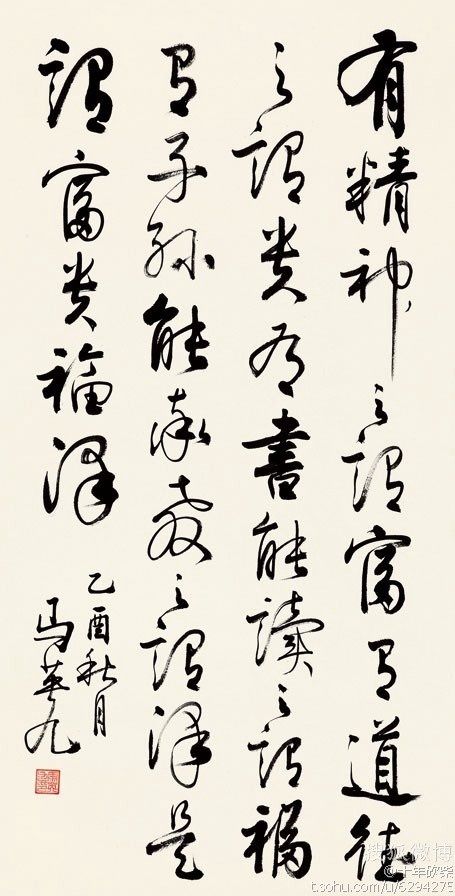 有精神之謂富有道德
之謂貴有書能讀之謂福
有子孫能承教之謂澤是
謂富貴福澤
乙酉秋月
馬英九
搜狐微博
@十年砍柴
t.sohu.com/u/6294275